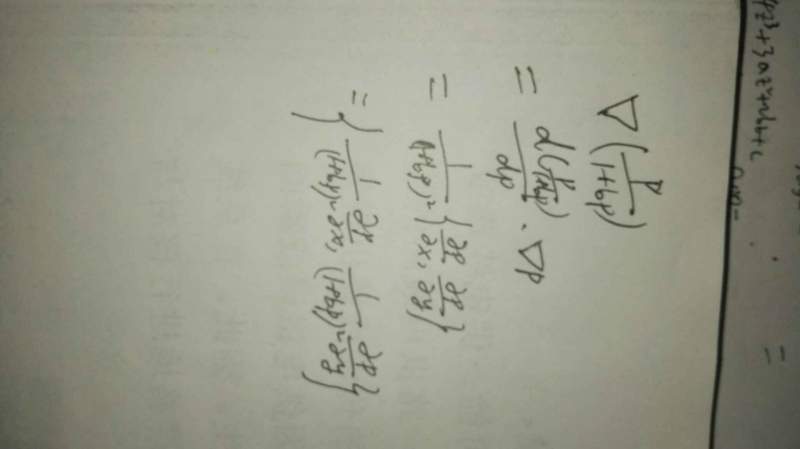 ∇(P/(1+bP))
= d(P/(1+bP))/dP · ∇P
= 1/(1+bP)² {∂P/∂x, ∂P/∂y}
= {1/(1+bP)² ∂P/∂x, 1/(1+bP)² ∂P/∂y}